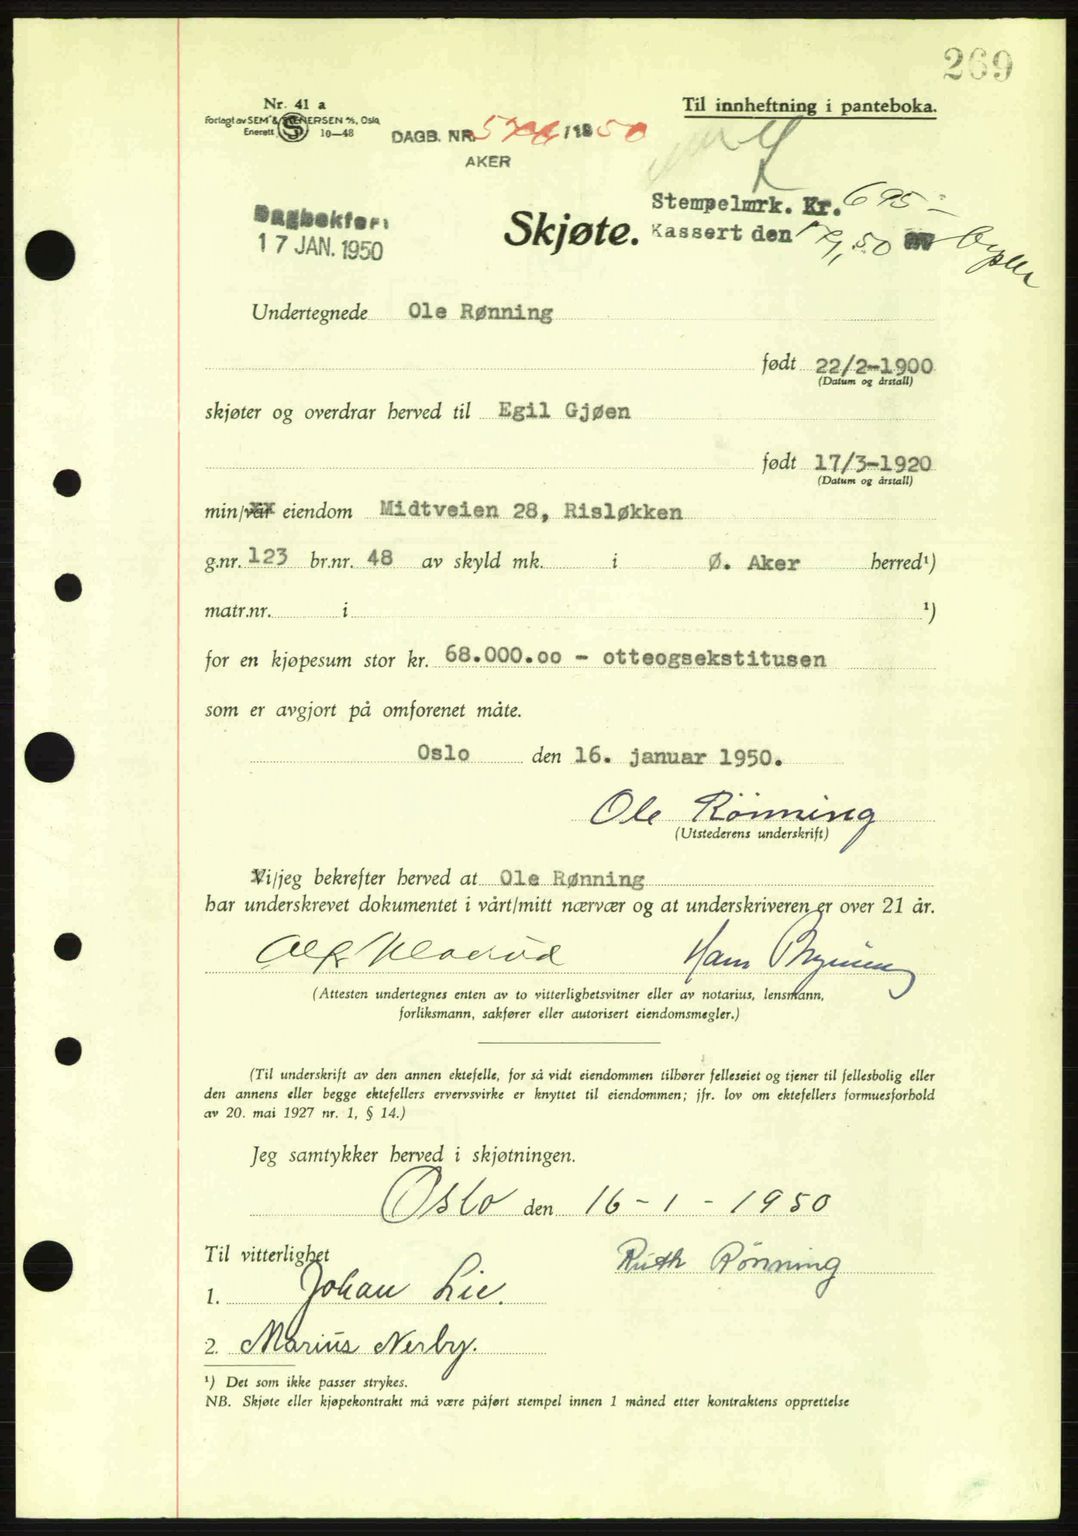 269
Nr. 41 a
Til innheftning i panteboka.
Forlagt av SEM & STENERSEN A/S, Oslo
Enerett S 10—48
DAGB. NR. /19 50
AKER
Stempelmrk. Kr. 695 -
Dagbokført
17 JAN. 1950
Skjøte. Kassert den 17/1 50
Undertegnede Ole Rønning
født 22/2-1900
(Datum og årstall)
skjøter og overdrar herved til Egil Gjøen
født 17/3-1920
(Datum og årstall)
min/vår eiendom Midtveien 28, Risløkken
g.nr. 123 br.nr. 48 av skyld mk. i Ø. Aker herred¹)
matr.nr. i ¹)
for en kjøpesum stor kr. 68.000.oo - otteogsekstitusen
som er avgjort på omforenet måte.
Oslo den 16. januar 1950.
Ole Rönning
(Utstederens underskrift)
Vi/jeg bekrefter herved at Ole Rønning
har underskrevet dokumentet i vårt/mitt nærvær og at underskriveren er over 21 år.
Hans
(Attesten undertegnes enten av to vitterlighetsvitner eller av notarius, lensmann,
forliksmann, sakfører eller autorisert eiendomsmegler.)
(Til underskrift av den annen ektefelle, for så vidt eiendommen tilhører felleseiet og tjener til fellesbolig eller
den annens eller begge ektefellers ervervsvirke er knyttet til eiendommen; jfr. lov om ektefellers formuesforhold
av 20. mai 1927 nr. 1, § 14.)
Jeg samtykker herved i skjøtningen.
Oslo den 16 - 1 - 1950
Til vitterlighet
Ruth Rönning
1. Johan Lie.
2. Marius Nerby.
¹) Det som ikke passer strykes.
NB. Skjøte eller kjøpekontrakt må være påført stempel innen 1 måned etter kontraktens opprettelse